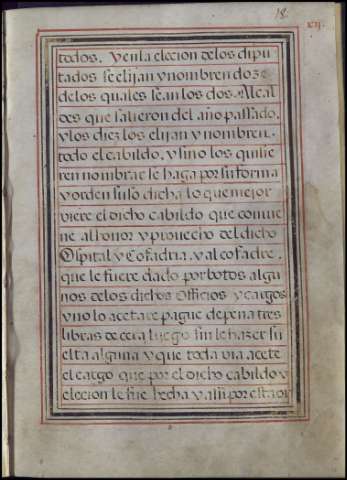 18
xij.
todos. y en la elecion de los dipu
tados se elijan y nombren doze
de los quales sean los dos. Alcal
des que salieron del año passado.
y los diez los elijan y nombren.
todo el cabildo. y sino los quisie
ren nombrar se haga por su forma
y orden suso dicha lo que mejor
viere el dicho cabildo que convie
ne al honor y provecho del dicho
Ospital y Cofadria. y al cofadre.
que le fuere dado por botos algu
nos de los dichos officios y cargos
y no lo acetare pague de pena tres
libras de cera luego sin le hazer su
elta alguna y que toda via acete
el cargo que por el dicho cabildo y
elecion le fue hecha y assi por esta or